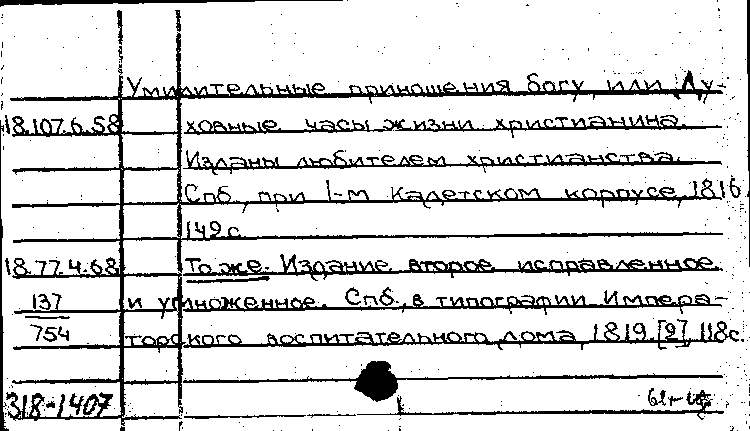 Умилительные приношения богу, или Ду-
18.107.6.58 ховные часы жизни христианина.
Изданы любителем христианства.
Спб, при 1-м Кадетском корпусе, 1816.
149 с.
18.77.4.68 То же. Издание второе исправленное
137 и умноженное. Спб, в типографии Импера-
754 торского воспитательного дома, 1819. [2], 118 с.
318-1407